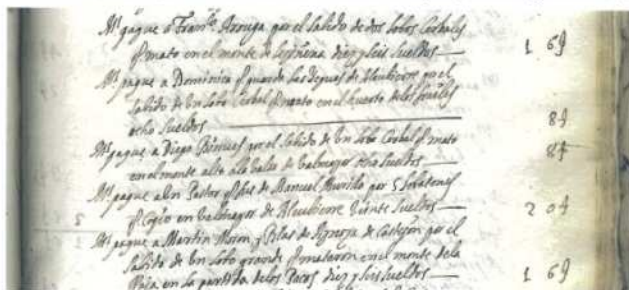 Mº pague a Franco Arruga por el salido de dos lobos Cerbales
q mato en el monte de Leziñena diez y seis sueldos — 1 6 ſ
Mº pague a Dominica q guarda las Yeguas de Alcubierre por el
salido de Un lobo Cerbal q mato en el huerto de los frailes
ocho sueldos — 8 ſ
Mº pague a Diego por el salido de Un lobo Cerbal q mato
en el monte alto a la balsa de balmayor ocho sueldos — 8 ſ
Mº pague a Un Pastor q fue de Manuel Murillo por 5 lobatones
q Cogio en balmayor de Alcubierre Viente sueldos — 2 0 ſ
Mº pague a Martin Moron y Blas de de Castejon por el
salido de Un lobo grande q mataron en el monte de la
en la partida de los diez y seis sueldos — 1 6 ſ